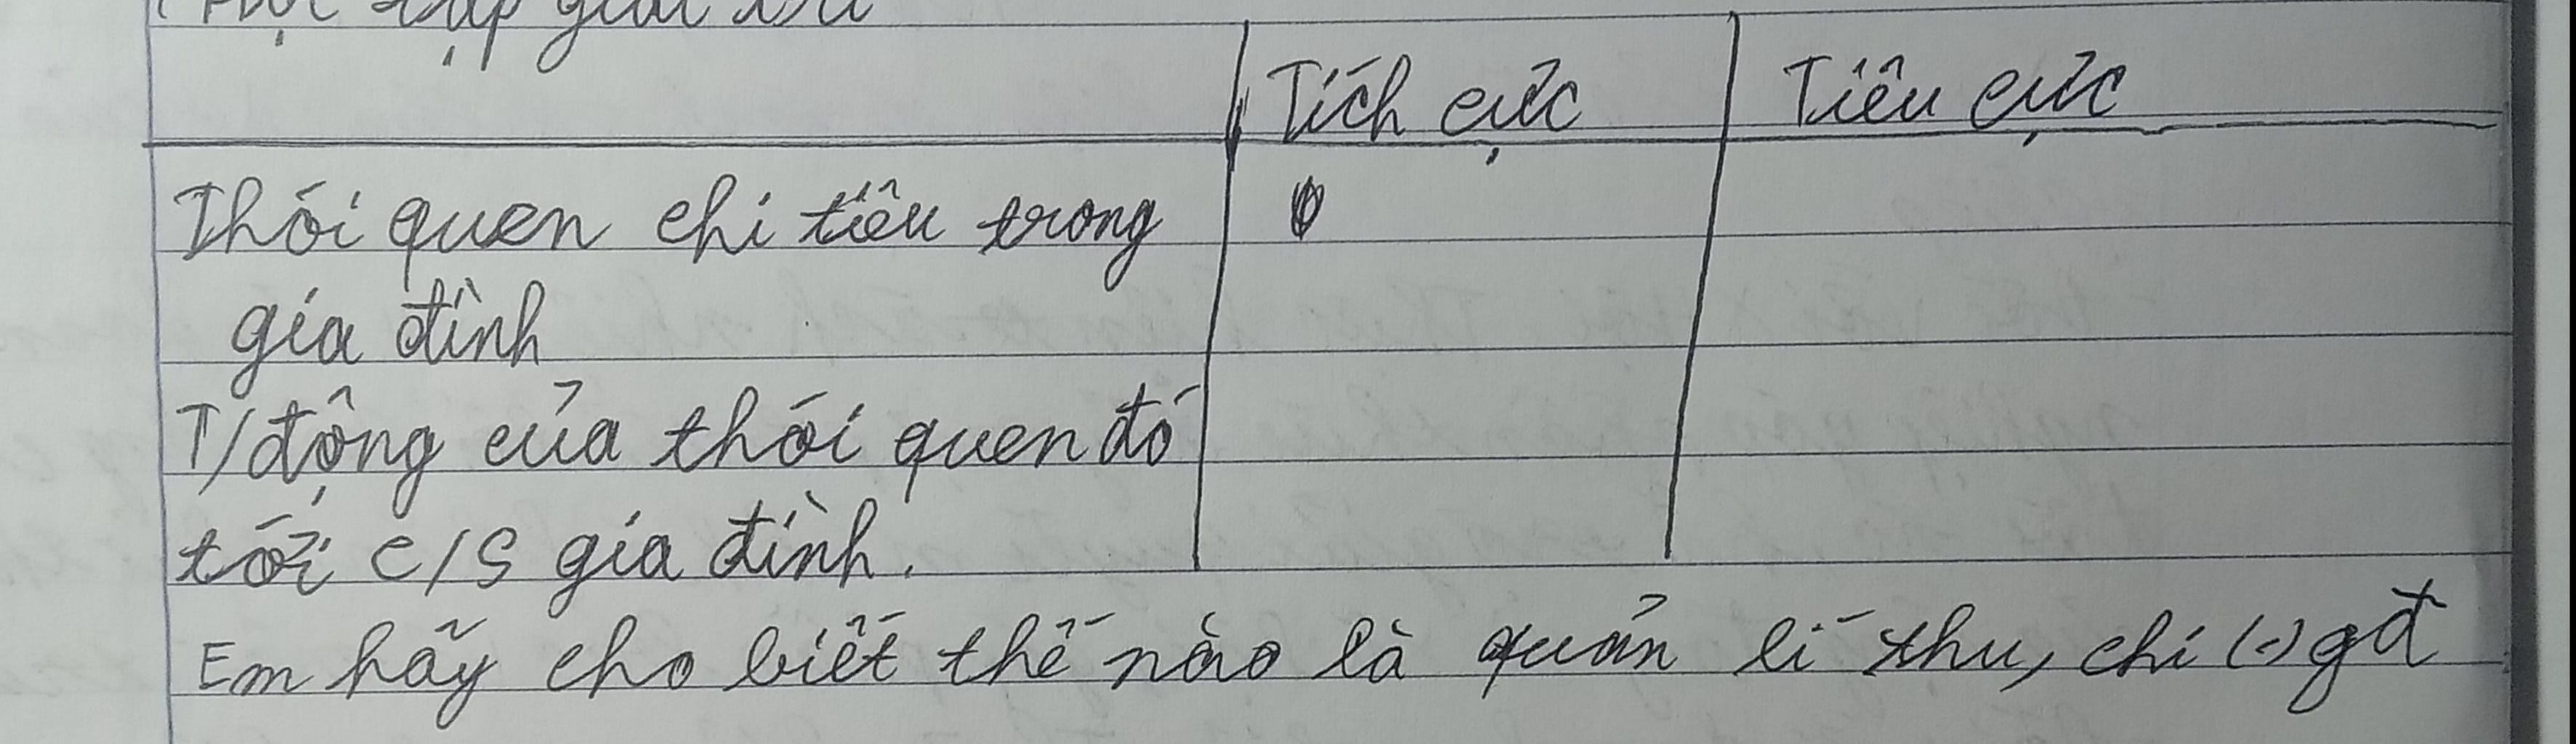 Học tập giải trí
Tích cực Tiêu cực
Thói quen chi tiêu trong
gia đình
T/động của thói quen đó
tới c/s gia đình.
Em hãy cho biết thế nào là quản lí thu, chi (-) gđ